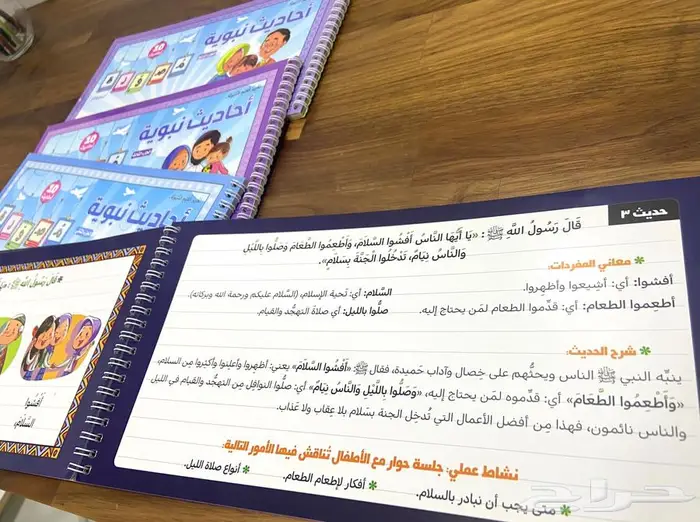 أحاديث نبوية
30
أحاديث نبوية
30
أحاديث نبوية
30
حديث ٣
قَالَ رَسُولُ اللَّهِ ﷺ : «يَا أَيُّهَا النَّاسُ أَفْشُوا السَّلَامَ، وَأَطْعِمُوا الطَّعَامَ وَصَلُّوا بِاللَّيْلِ
وَالنَّاسُ نِيَامٌ، تَدْخُلُوا الْجَنَّةَ بِسَلَامٍ».
* معاني المفردات:
أفشوا: أي: أشيعوا وأظهروا.
السَّلام: أي: تحية الإسلام، (السَّلام عليكم ورحمة الله وبركاته).
أطعِموا الطعام: أي: قدِّموا الطعام لمَن يحتاج إليه.
صلُّوا بالليل: أي صلاة التهجُّد والقيام.
* شرح الحديث:
ينبِّه النبي ﷺ الناس ويحثُّهم على خِصال وآداب حَميدة، فقال ﷺ «أَفْشُوا السَّلَامَ» يعني: أظهروا وأعلِنوا وأكثِروا مِن السلام،
«وَأَطْعِمُوا الطَّعَامَ» أي: قدِّموه لمَن يحتاج إليه، «وَصَلُّوا بِاللَّيْلِ وَالنَّاسُ نِيَامٌ» أي: صلُّوا النوافِل مِن التهجُّد والقيام في الليل
والناس نائمون، فهذا مِن أفضل الأعمال التي تُدخِل الجنة بسَلام بلا عِقاب ولا عَذاب.
نشاط عملي: جلسة حوار مع الأطفال تُناقش فيها الأمور التالية:
* متى يجب أن نبادر بالسلام.
* أفكار لإطعام الطعام.
* أنواع صلاة الليل.
قَالَ رَسُولُ اللَّهِ ﷺ
أَفْشُوا
السَّلَامَ،
حراج